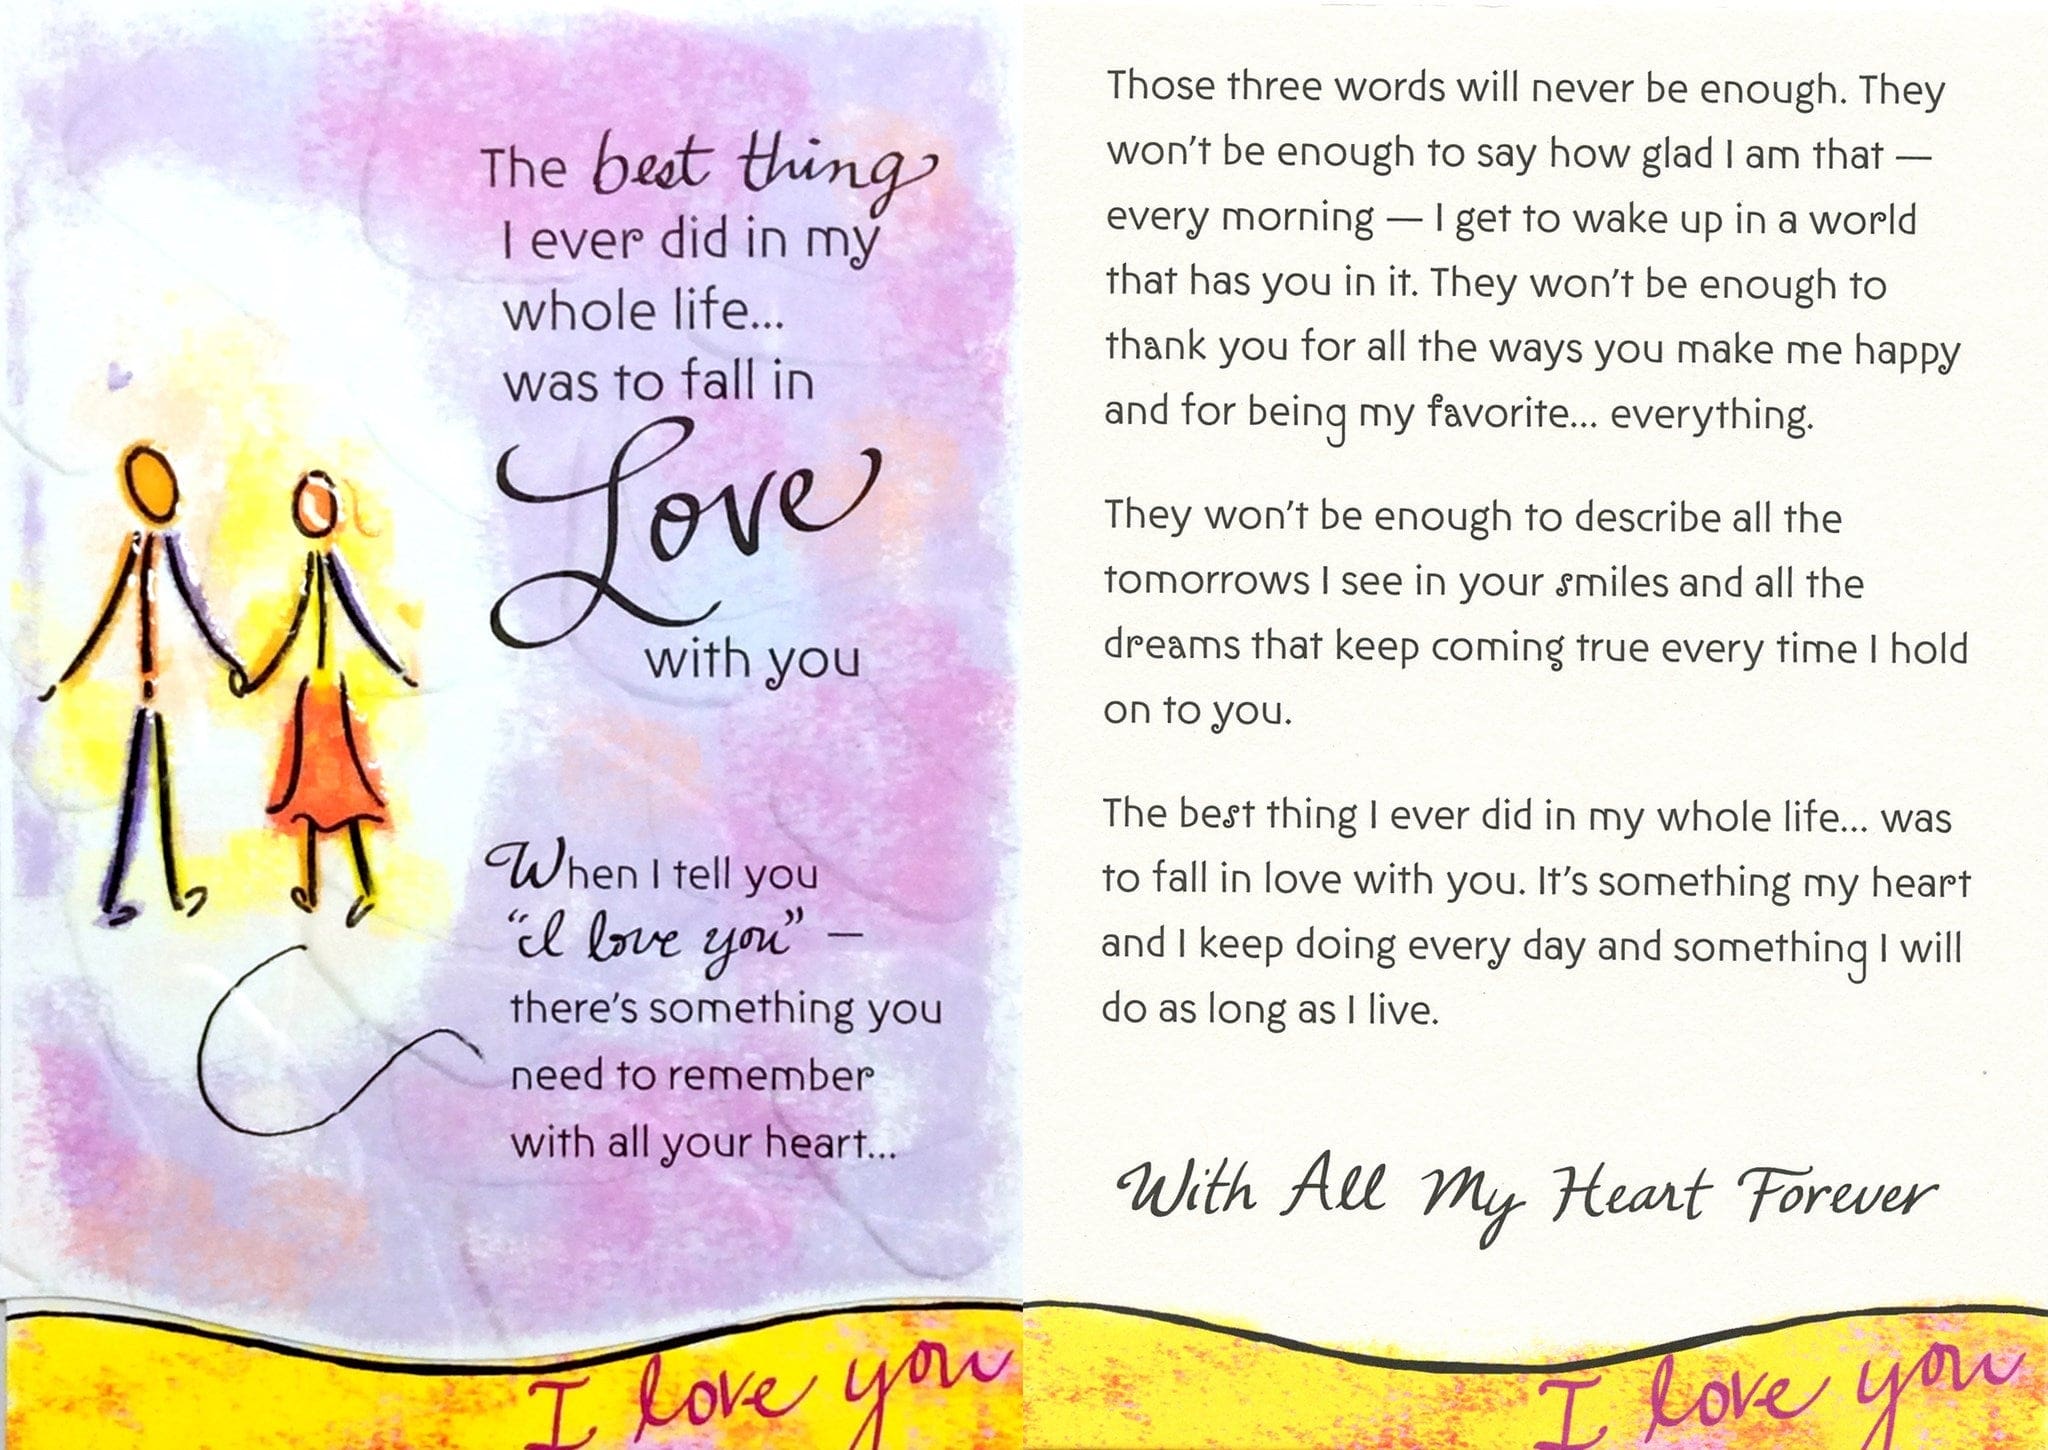 The best thing
I ever did in my
whole life...
was to fall in
Love
with you
When I tell you
“I love you” —
there's something you
need to remember
with all your heart...
I love you
Those three words will never be enough. They
won't be enough to say how glad I am that —
every morning — I get to wake up in a world
that has you in it. They won't be enough to
thank you for all the ways you make me happy
and for being my favorite... everything.
They won't be enough to describe all the
tomorrows I see in your smiles and all the
dreams that keep coming true every time I hold
on to you.
The best thing I ever did in my whole life... was
to fall in love with you. It's something my heart
and I keep doing every day and something I will
do as long as I live.
With All My Heart Forever
I love you